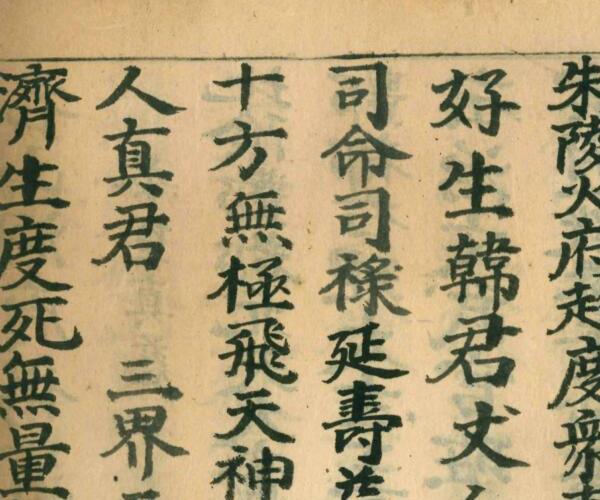 朱陵火府起度衆
好生韓君丈
司命司祿延壽益
十方無極飛天神
人真君　三界
濟生度死無量